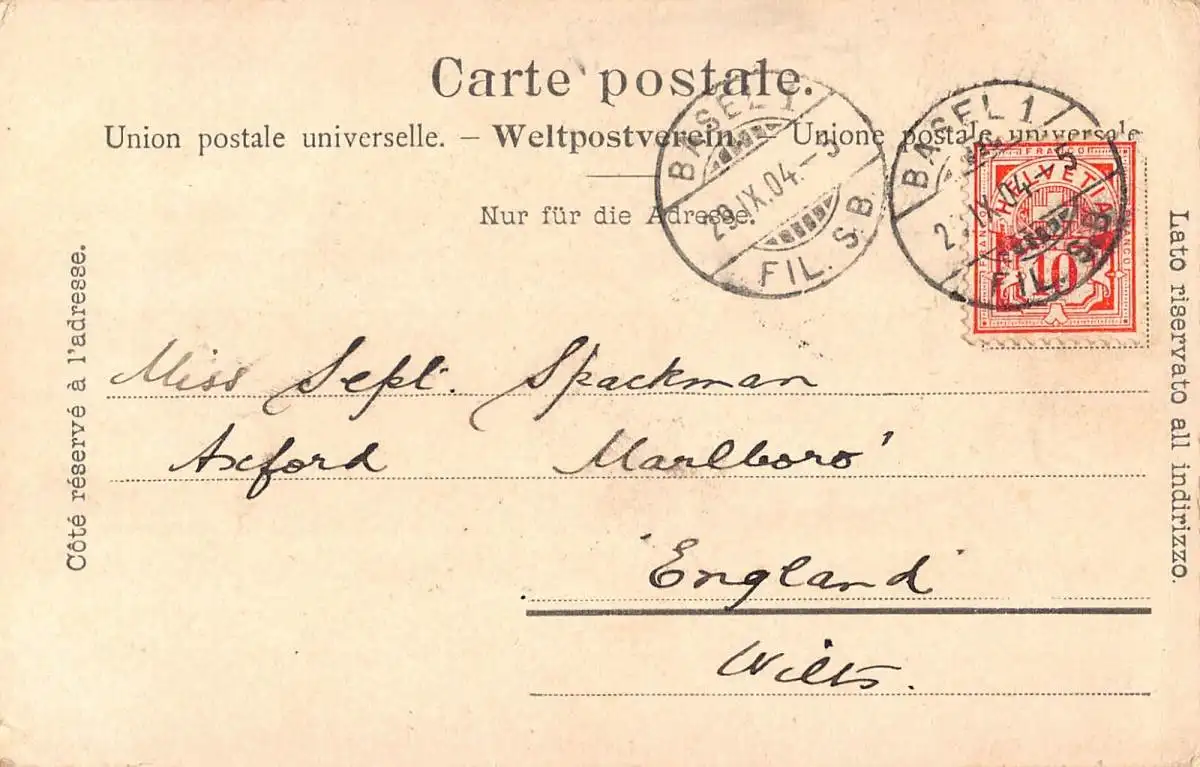 Carte postale.
Union postale universelle. – Weltpostverein. – Unione postale universale
Nur für die Adresse.
Côté réservé à l'adresse.
Lato riservato all indirizzo.
BASEL 1
29.IX.04.–5
FIL. S.B.
BASEL 1
IX.04–5
FIL. S.B.
FRANCO
HELVETIA
FRANCO
10
Miss Sept. Spackman
Axford Marlboro'
'England'
Wilts.